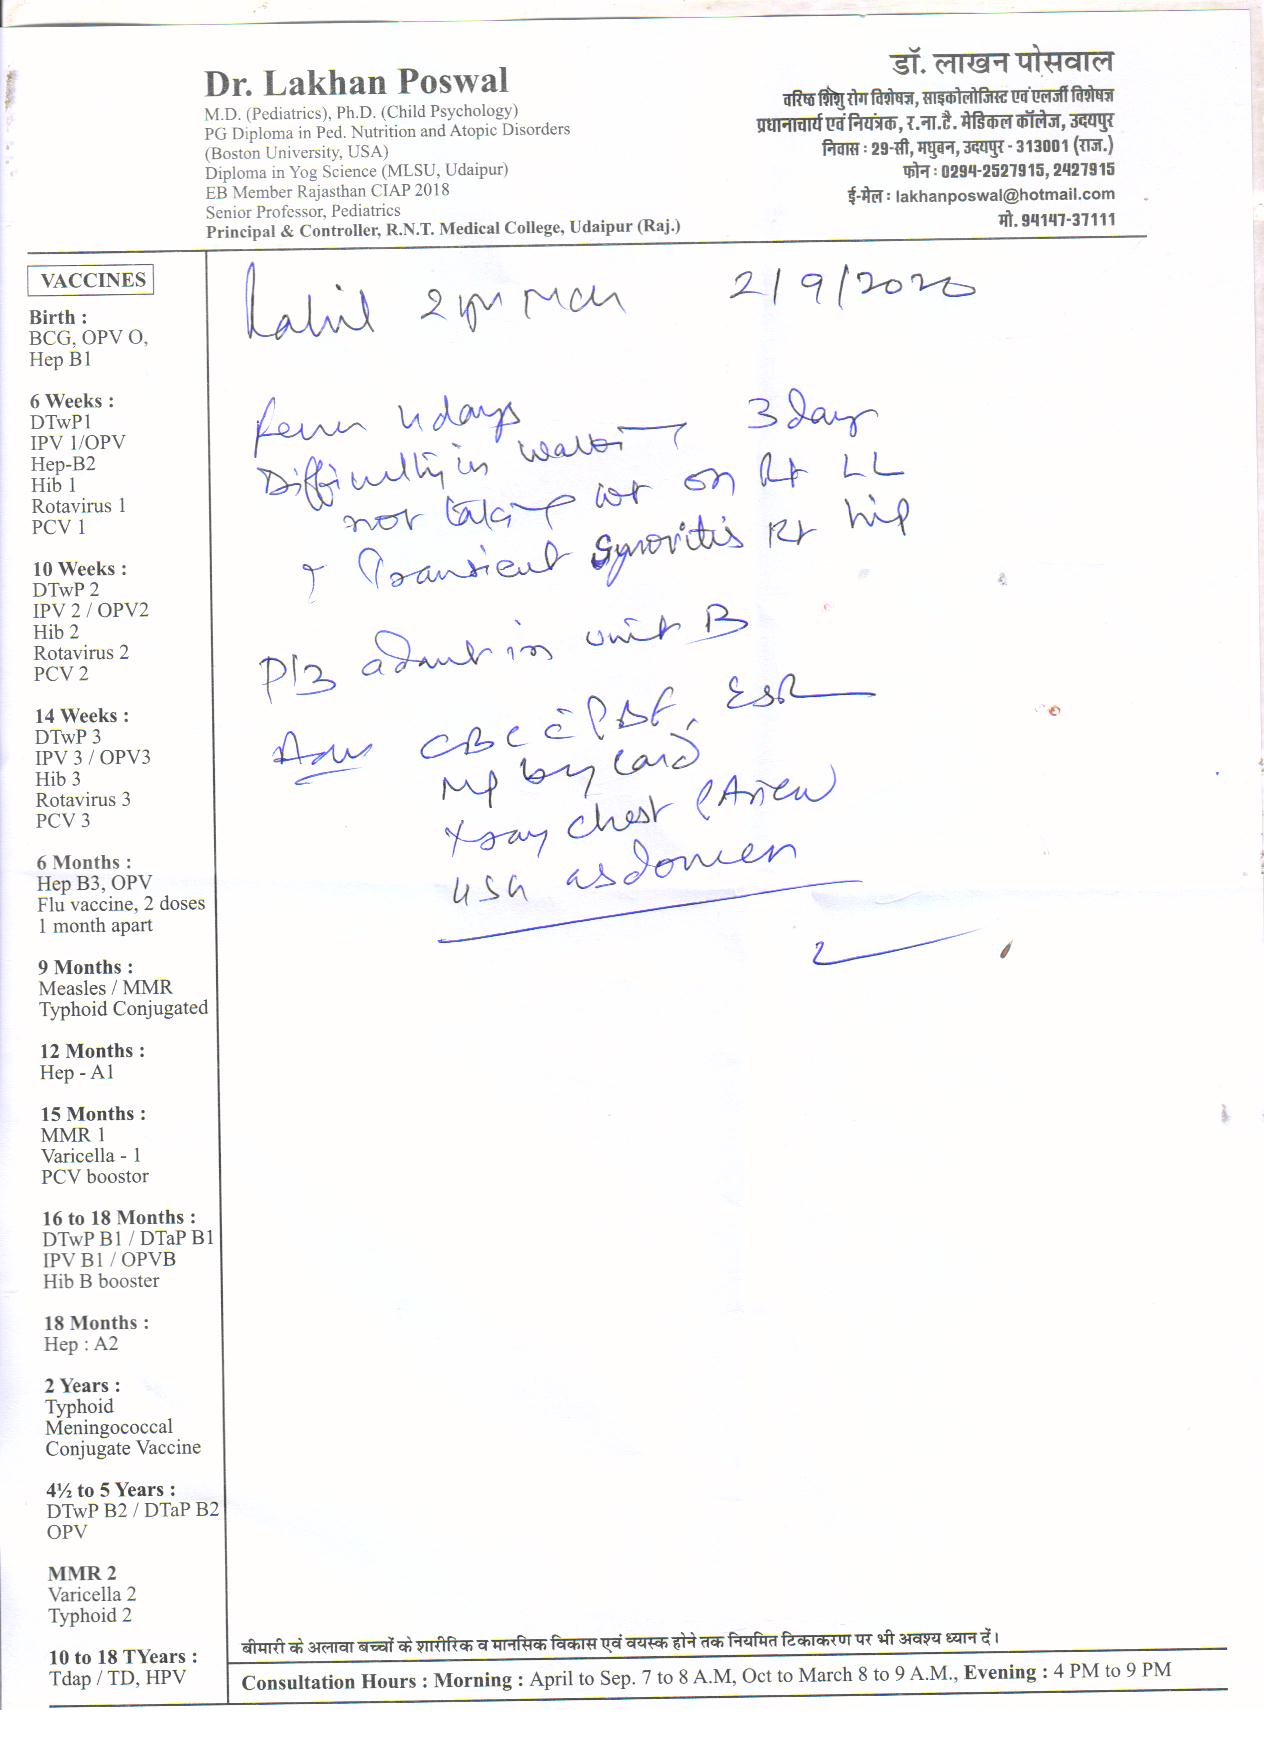 Dr. Lakhan Poswal
M.D. (Pediatrics), Ph.D. (Child Psychology)
PG Diploma in Ped. Nutrition and Atopic Disorders
(Boston University, USA)
Diploma in Yog Science (MLSU, Udaipur)
EB Member Rajasthan CIAP 2018
Senior Professor, Pediatrics
Principal & Controller, R.N.T. Medical College, Udaipur (Raj.)
डॉ. लाखन पोसवाल
वरिष्ठ शिशु रोग विशेषज्ञ, साइकोलोजिस्ट एवं एलर्जी विशेषज्ञ
प्रधानाचार्य एवं नियंत्रक, र.ना.टै. मेडिकल कॉलेज, उदयपुर
निवास : 29-सी, मधुबन, उदयपुर - 313001 (राज.)
फोन : 0294-2527915, 2427915
ई-मेल : lakhanposwal@hotmail.com
मो. 94147-37111
VACCINES
Birth :
BCG, OPV O,
Hep B1
6 Weeks :
DTwP1
IPV 1/OPV
Hep-B2
Hib 1
Rotavirus 1
PCV 1
10 Weeks :
DTwP 2
IPV 2 / OPV2
Hib 2
Rotavirus 2
PCV 2
14 Weeks :
DTwP 3
IPV 3 / OPV3
Hib 3
Rotavirus 3
PCV 3
6 Months :
Hep B3, OPV
Flu vaccine, 2 doses
1 month apart
9 Months :
Measles / MMR
Typhoid Conjugated
12 Months :
Hep - A1
15 Months :
MMR 1
Varicella - 1
PCV boostor
16 to 18 Months :
DTwP B1 / DTaP B1
IPV B1 / OPVB
Hib B booster
18 Months :
Hep : A2
2 Years :
Typhoid
Meningococcal
Conjugate Vaccine
4½ to 5 Years :
DTwP B2 / DTaP B2
OPV
MMR 2
Varicella 2
Typhoid 2
10 to 18 TYears :
Tdap / TD, HPV
2 yr 2/9/2020
fever 4 days
Difficulty in walking 3 day
not taking wt on Rt LL
? Transient Synovitis Rt hip
Plz admit in unit B
Adv CBC c̄ PBF, ESR
MP by Card
Xray chest PA view
USG abdomen
बीमारी के अलावा बच्चों के शारीरिक व मानसिक विकास एवं वयस्क होने तक नियमित टिकाकरण पर भी अवश्य ध्यान दें।
Consultation Hours : Morning : April to Sep. 7 to 8 A.M, Oct to March 8 to 9 A.M., Evening : 4 PM to 9 PM